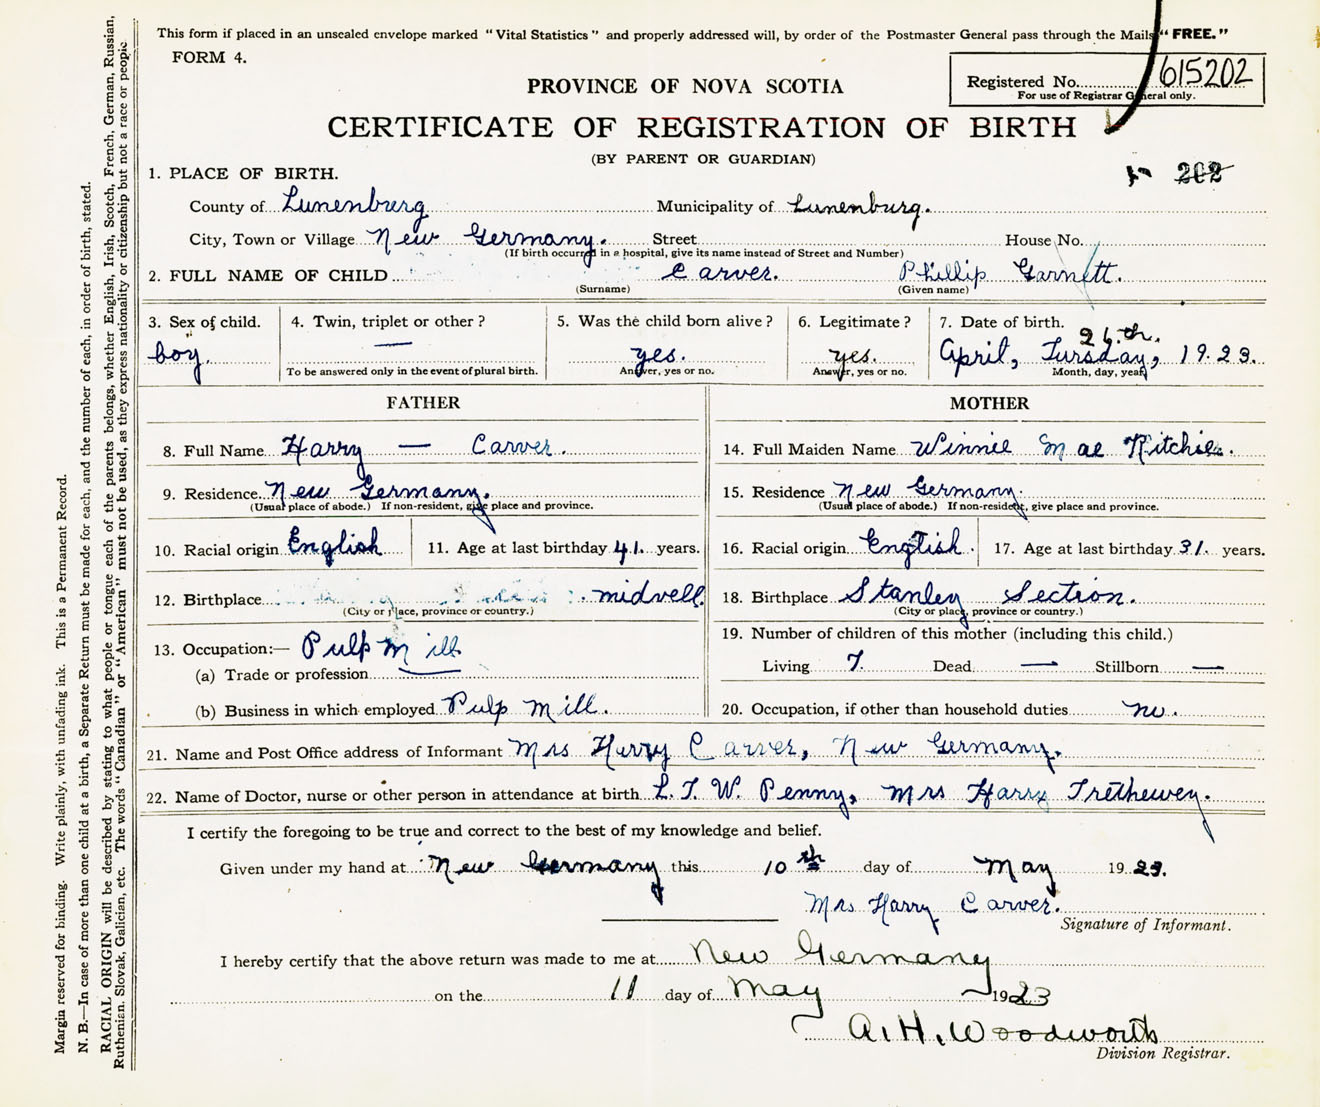 This form if placed in an unsealed envelope marked "Vital Statistics" and properly addressed will, by order of the Postmaster General pass through the Mails "FREE."
FORM 4.
Registered No. 615202
For use of Registrar General only.
PROVINCE OF NOVA SCOTIA
CERTIFICATE OF REGISTRATION OF BIRTH
(BY PARENT OR GUARDIAN)
202
1. PLACE OF BIRTH.
County of Lunenburg Municipality of Lunenburg.
City, Town or Village New Germany. Street House No.
(If birth occurred in a hospital, give its name instead of Street and Number)
2. FULL NAME OF CHILD Carver. Phillip Garnett.
(Surname) (Given name)
3. Sex of child. 4. Twin, triplet or other? 5. Was the child born alive? 6. Legitimate? 7. Date of birth.
26.th.
boy. — yes. yes. April, Tursday, 1923.
To be answered only in the event of plural birth. Answer, yes or no. Answer, yes or no. Month, day, year,
FATHER MOTHER
8. Full Name Harry — Carver. 14. Full Maiden Name Winnie Mae Ritchie.
9. Residence New Germany. 15. Residence New Germany.
(Usual place of abode.) If non-resident, give place and province. (Usual place of abode.) If non-resident, give place and province.
10. Racial origin English 11. Age at last birthday 41. years. 16. Racial origin English. 17. Age at last birthday 31. years.
12. Birthplace midvell. 18. Birthplace Stanley Section.
(City or place, province or country.) (City or place, province or country.)
19. Number of children of this mother (including this child.)
13. Occupation:— Pulp Mill
Living 7. Dead — Stillborn —
(a) Trade or profession
(b) Business in which employed Pulp Mill. 20. Occupation, if other than household duties no.
21. Name and Post Office address of Informant Mrs Harry Carver, New Germany.
22. Name of Doctor, nurse or other person in attendance at birth L. T. W. Penny, Mrs Harry Trethewey.
I certify the foregoing to be true and correct to the best of my knowledge and belief.
Given under my hand at New Germany this 10th day of May 1923.
Mrs Harry Carver.
Signature of Informant.
I hereby certify that the above return was made to me at New Germany
on the 11 day of May 1923
A. H. Woodworth
Division Registrar.
Margin reserved for binding. Write plainly, with unfading ink. This is a Permanent Record.
N. B.—In case of more than one child at a birth, a Separate Return must be made for each, and the number of each, in order of birth, stated.
RACIAL ORIGIN will be described by stating to what people or tongue each of the parents belongs, whether English, Irish, Scotch, French, German, Russian,
Ruthenian, Slovak, Galician, etc. The words "Canadian" or "American" must not be used, as they express nationality or citizenship but not a race or people